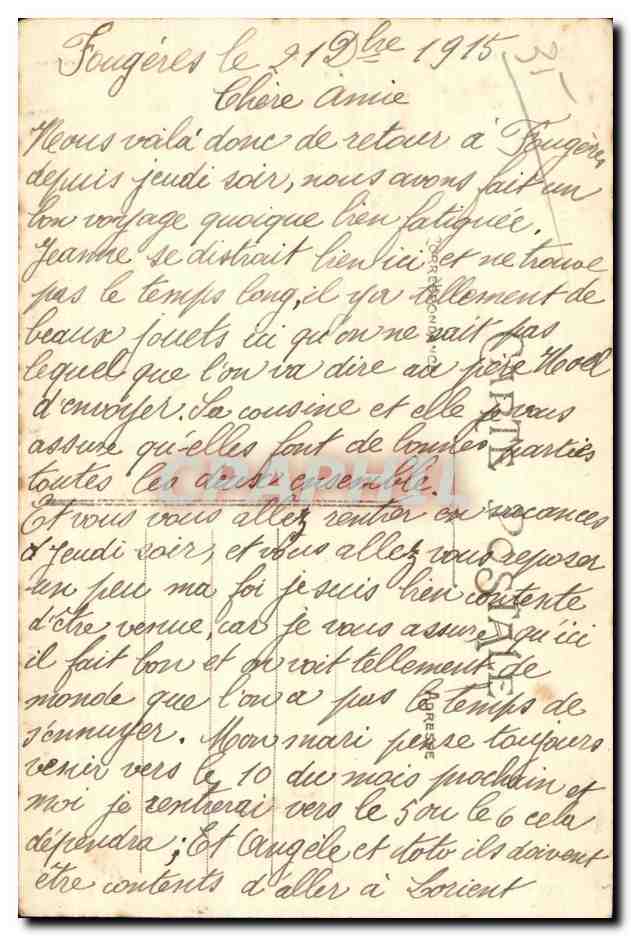 Fougéres le 21 Dbre 1915
31
Chère Amie
Nous voilà donc de retour à Fougères
depuis jeudi soir, nous avons fait un
bon voyage quoique bien fatiguée.
Jeanne se distrait bien ici et ne trouve
pas le temps long, il y a tellement de
beaux jouets ici qu'on ne sait pas
lequel que l'on va dire au père Noel
d'envoyer. Sa cousine et elle je vous
assure qu'elles font de bonnes parties
toutes les deux ensemble.
Et vous vous allez rentrer en vacances
Jeudi soir, et vous allez vous reposer
un peu ma foi je suis bien contente
d'être venue, car je vous assure qu'ici
il fait bon et on voit tellement de
monde que l'on a pas le temps de
s'ennuyer. Mon mari pense toujours
venir vers le 10 du mois prochain et
moi je rentrerai vers le 5 ou le 6 cela
dépendra; Et Angèle et toto ils doivent
être contents d'aller à Lorient
CARTE POSTALE
CORRESPONDANCE
ADRESSE
CPAPHIL